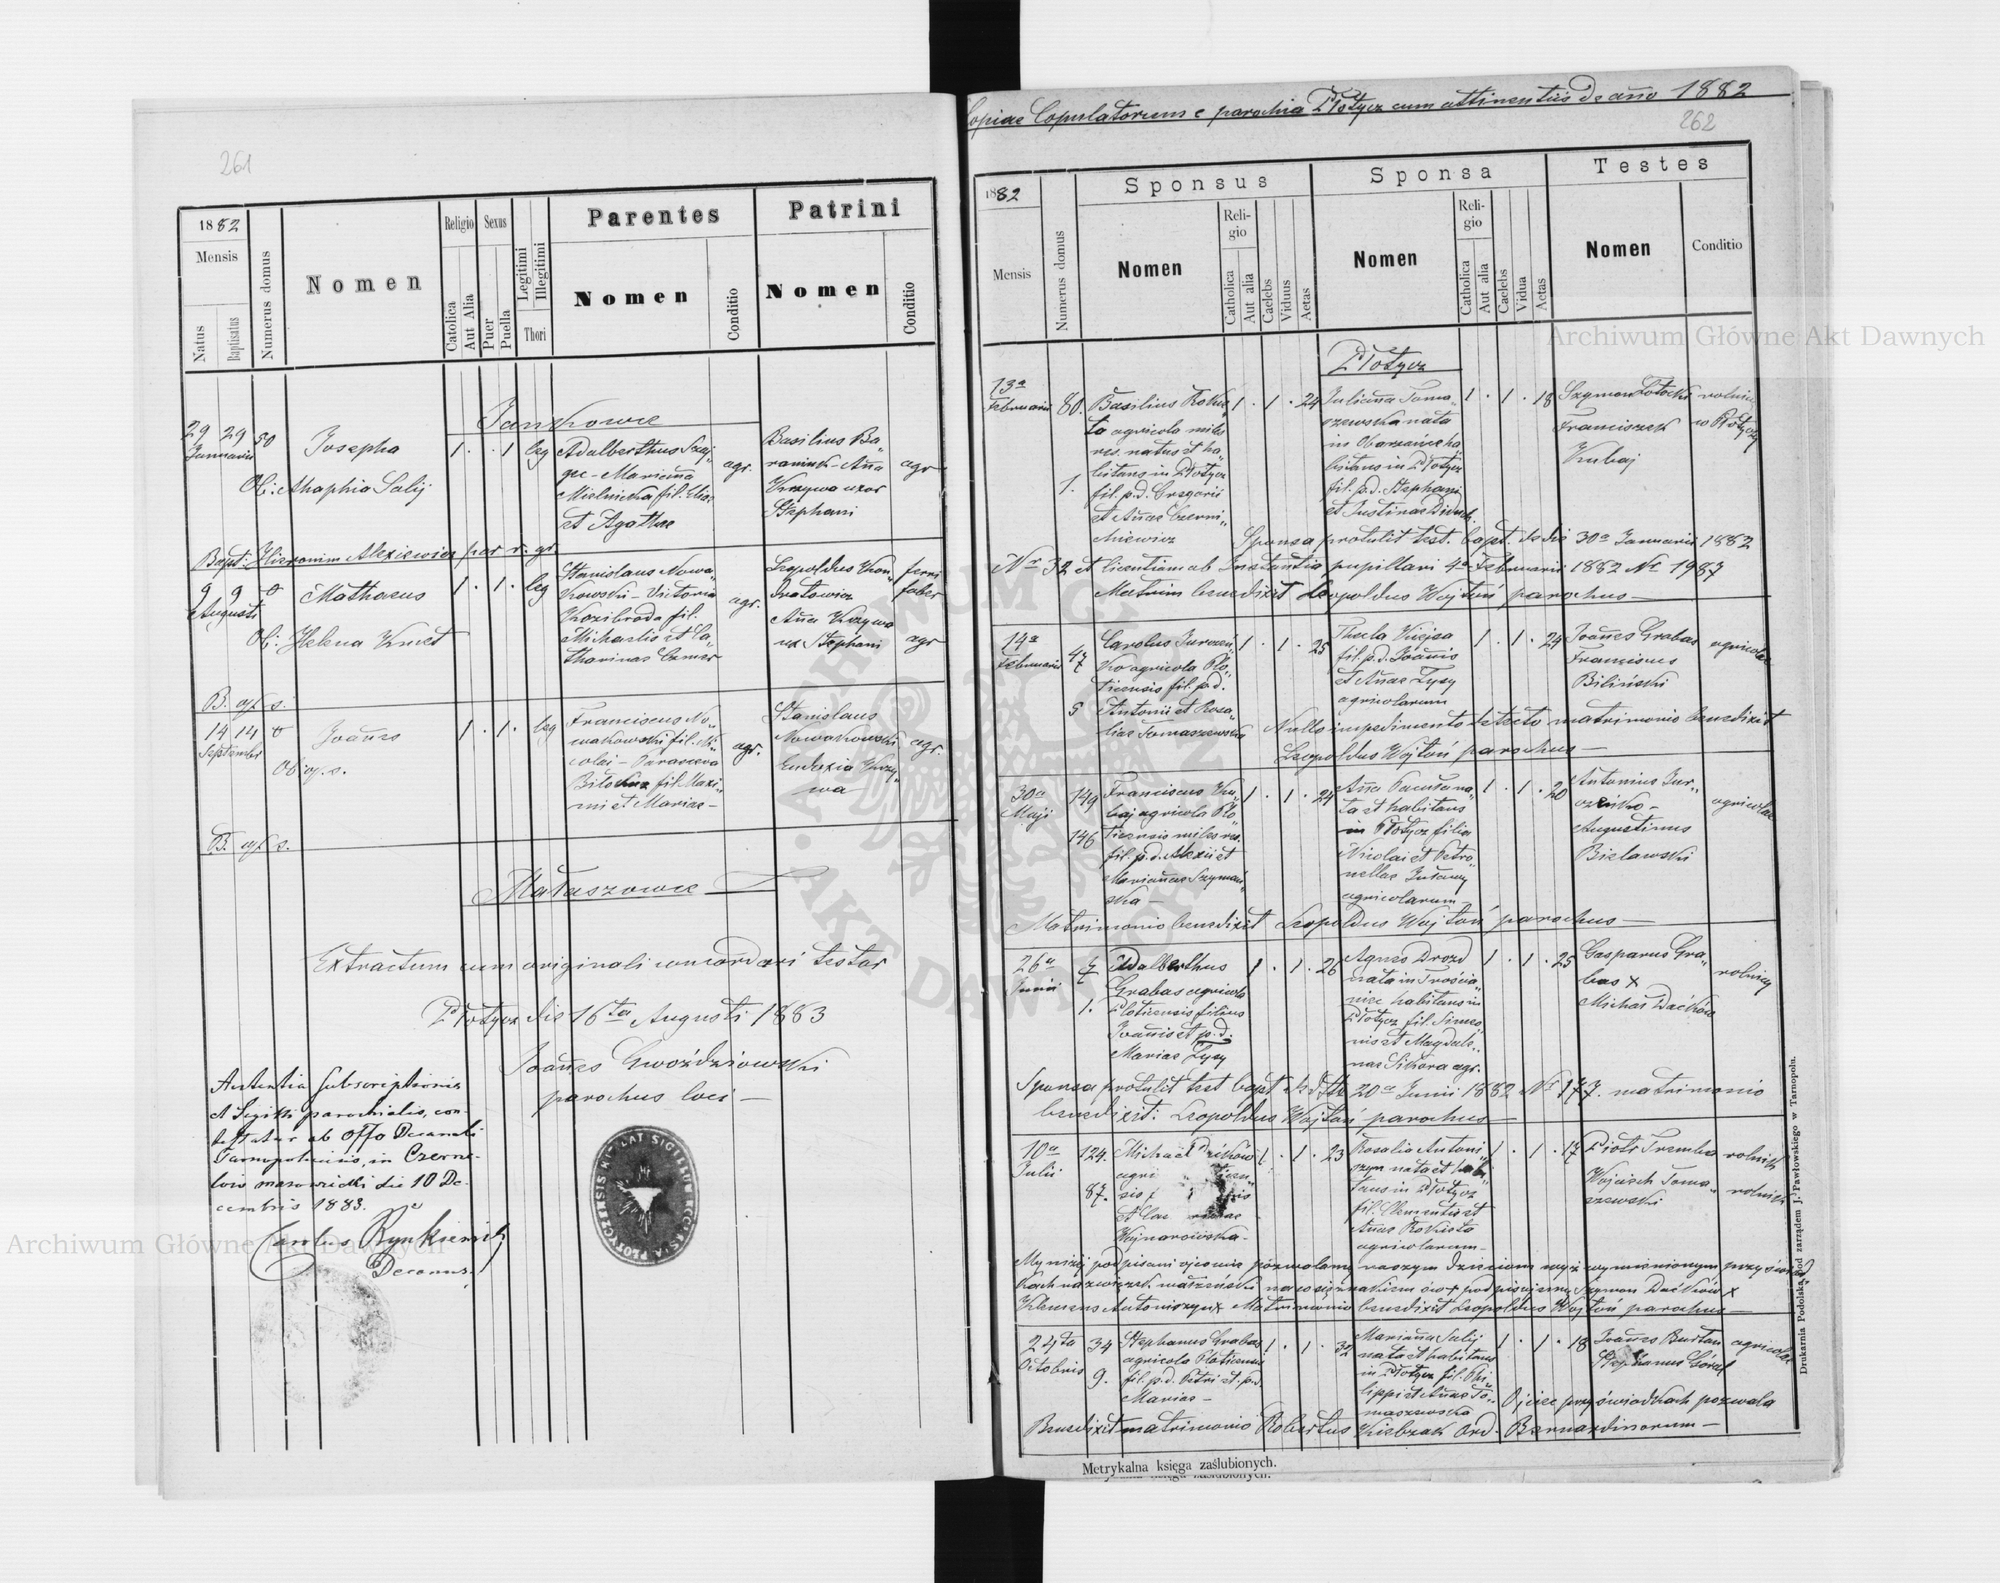 261
1882
Mensis
Natus
Baptisatus
Numerus domus
Nomen
Religio
Catolica
Aut Alia
Sexus
Puer
Puella
Legitimi
Illegitimi
Thori
Parentes
Nomen
Conditio
Patrini
Nomen
Conditio
Jankowce
29 29 50 Josepha 1 . . 1 leg Adalberthus
Januarii
gec - Marianna
Mielnicka fil.
et Agathae
agr.
Basilius Ba„
raniuk - Anna
Krzywa uxor
Stephani
agr
Ob: Ahaphia Salij
Bapt: Hieronim Alexiewicz par. r. gr.
9 9 Mathaeus 1 . 1 . leg Stanislaus Nowa„
Augusti
kowski - Victoria
Kozibroda fil.
Michaelis et Ca„
tharinae
agr.
Leopoldus Kon„
dratowicz
Anna Krzywa
ux Stephani
ferri
faber
agr
Ob: Helena Kmet
B. of. s.
14 14 Joannes 1 . 1 . leg Franciscus No„
September
wakowski fil. Ni„
colai - Parasceva
fil. Maxi„
mi et Mariae -
agr.
Stanislaus
Nowakowski
Eudoxia Krzy„
wa -
agr.
Ob: of. s.
B. of. s.
Małaszowce
Extractum cum originali concordari testor
Płotycz die 16ta Augusti 1883
Joannes Gwoździowski
parochus loci -
Autentia subscriptionis
et Sigilli parochialis, con„
testatur ab offo Decanali
Tarnopoliensis, in Czerne„
lów mazowiecki die 10 De„
cembris 1883.
Carolus
Decanus
Copiae Copulatorum e parochia Płotycz cum attinentiis de anno 1882
262
1882
Mensis
Numerus domus
Sponsus
Nomen
Religio
Catholica
Aut alia
Caelebs
Viduus
Aetas
Sponsa
Nomen
Religio
Catholica
Aut alia
Caelebs
Vidua
Aetas
Testes
Nomen
Conditio
Płotycz
13a
Februarii
80.
1.
Basilius Roku„
ta agricola miles
res. natus et ha„
bitans in Płotycz
fil. p.d. Gregorii
et Annae Czerni„
niewicz
1 . 1 . 24
Juliana Toma„
szewska nata
in Obarzańce ha„
bitans in Płotycz
fil. p.d. Stephani
et Justinae
1 . 1 . 18
Szymon Łotocki
Franciszek
Kubaj
rolnicy
w Płotyczy
Sponsa protulit test. bapt. de die 30a Januarii 1882
No 32 et licentiam ab Instantia pupillari 4a Februarii 1882 No 1987
Matrim benedixit Leopoldus Wojtoń parochus -
14a
Februarii
47
5
Carolus Jurczeń„
ko agricola Plo„
ticensis fil. p.d.
Antonii et Rosa„
liae Tomaszewska
1 . 1 . 25
Thecla
fil. p.d. Joannis
et Annae Łysy
agricolarum
1 . 1 . 24
Joannes Grabas
Franciscus
Biliński
agricolae
Nullo impedimento detecto matrimonio benedixit
Leopoldus Wojtoń parochus -
30a
Maji
149
146
Franciscus Ku„
baj agricola Plo„
ticensis miles res.
fil. p.d. Alexii et
Mariannae Szymań„
ska -
1 . 1 . 24
Anna na„
ta et habitans
in Płotycz filia
Nicolai et Petro„
nellae
agricolarum
1 . 1 . 20
Antonius Jur„
czeńko -
Augustinus
Bielawski
agricolae
Matrimonio benedixit Leopoldus Wojtoń parochus -
26a
Junii
1.
Adalberthus
Grabas agricola
Ploticensis filius
Joannis et p.d.
Mariae Łysy
1 . 1 . 26
Agnes Drozd
nata in Trościa„
niec habitans in
Płotycz fil. Simeo„
nis et Magdale„
nae Sikora agr.
1 . 1 . 25
Gasparus Gra„
bas x
Michał Daćków
rolnicy
Sponsa protulit test bapt de dtto 20a Junii 1882 No 177. matrimonio
benedixit: Leopoldus Wojtoń parochus -
10a
Julii
124.
87.
Michael
agri
Wojnarowska -
1 . 1 . 23
Rosalia Antoni„
szyn nata et habi„
tans in Płotycz
fil. Clementis et
Annae Rokieta
agricolarum -
1 . 1 . 17
Piotr Tremba
Wojciech Toma„
szewski
rolnik
rolnik
My niżej podpisani ojcowie pozwalamy naszym dzieciom wyż wymienionym przy świad„
kach na związek małżeński na co się znakiem ś x podpisujemy Szymon Daćków x
Klemens Antoniszyn x Matrimonio benedixit Leopoldus Wojtoń parochus -
24ta
Octobris
34
9.
Stephanus Grabas
agricola Ploticensis
fil. p.d. Petri et p.d.
Mariae -
1 . 1 . 32
Marianna Salij
nata et habitans
in Płotycz fil. Phi„
lippi et Annae To„
maszewska
1 . 1 . 18
Joannes Burtan
Stephanus
agricolae
Ojciec przy świadkach pozwala
Benedixit matrimonio Robertus Ord. Bernardinorum -
Metrykalna księga zaślubionych.
Drukarnia Podolska pod zarządem J. Pawłowskiego w Tarnopolu.
Archiwum Główne Akt Dawnych
Archiwum Główne Akt Dawnych